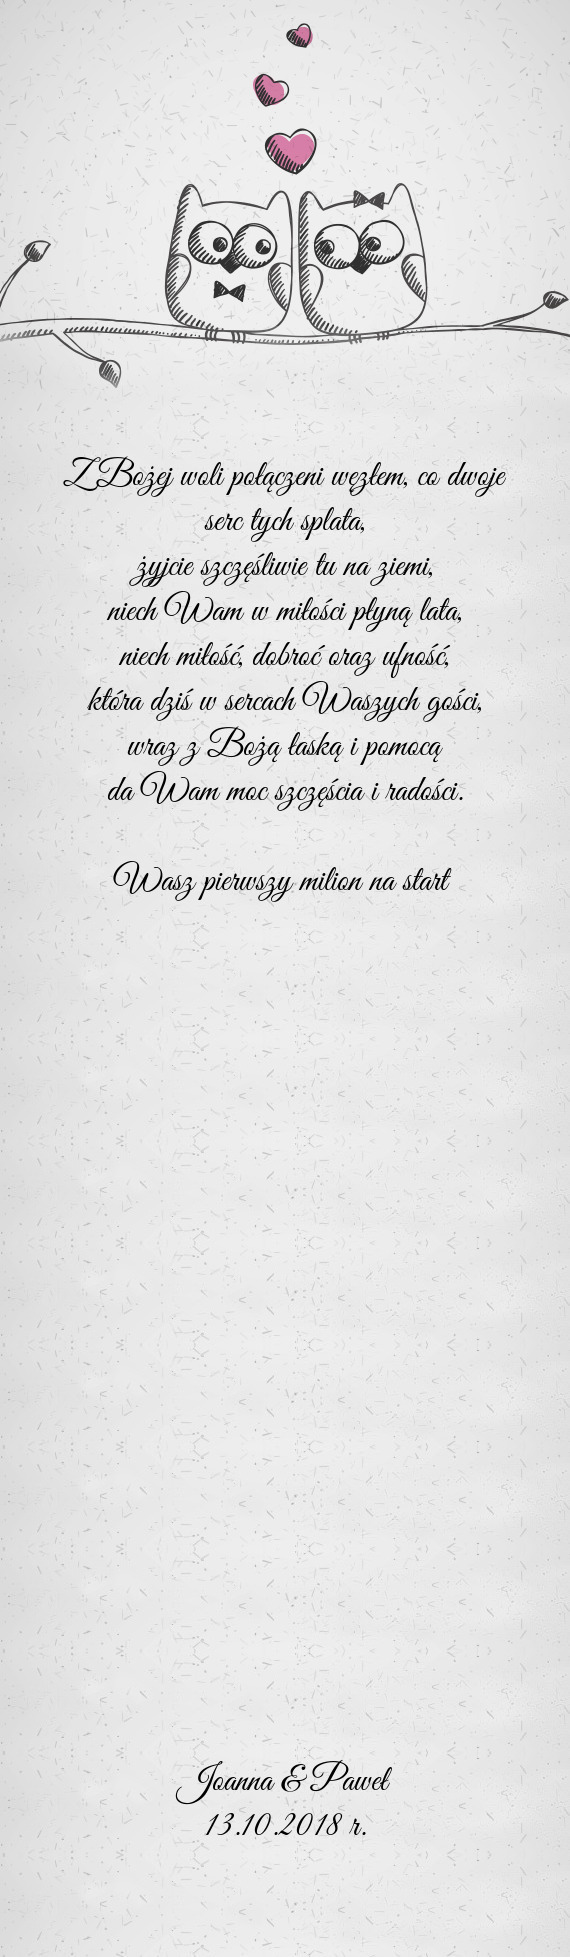 Z Bożej woli połączeni węzłem, co dwoje
serc tych splata,
żyjcie szczęśliwie tu na ziemi,
niech Wam w miłości płyną lata,
niech miłość, dobroć oraz ufność,
która dziś w sercach Waszych gości,
wraz z Bożą łaską i pomocą
da Wam moc szczęścia i radości.

Wasz pierwszy milion na start

Joanna & Paweł
13.10.2018 r.